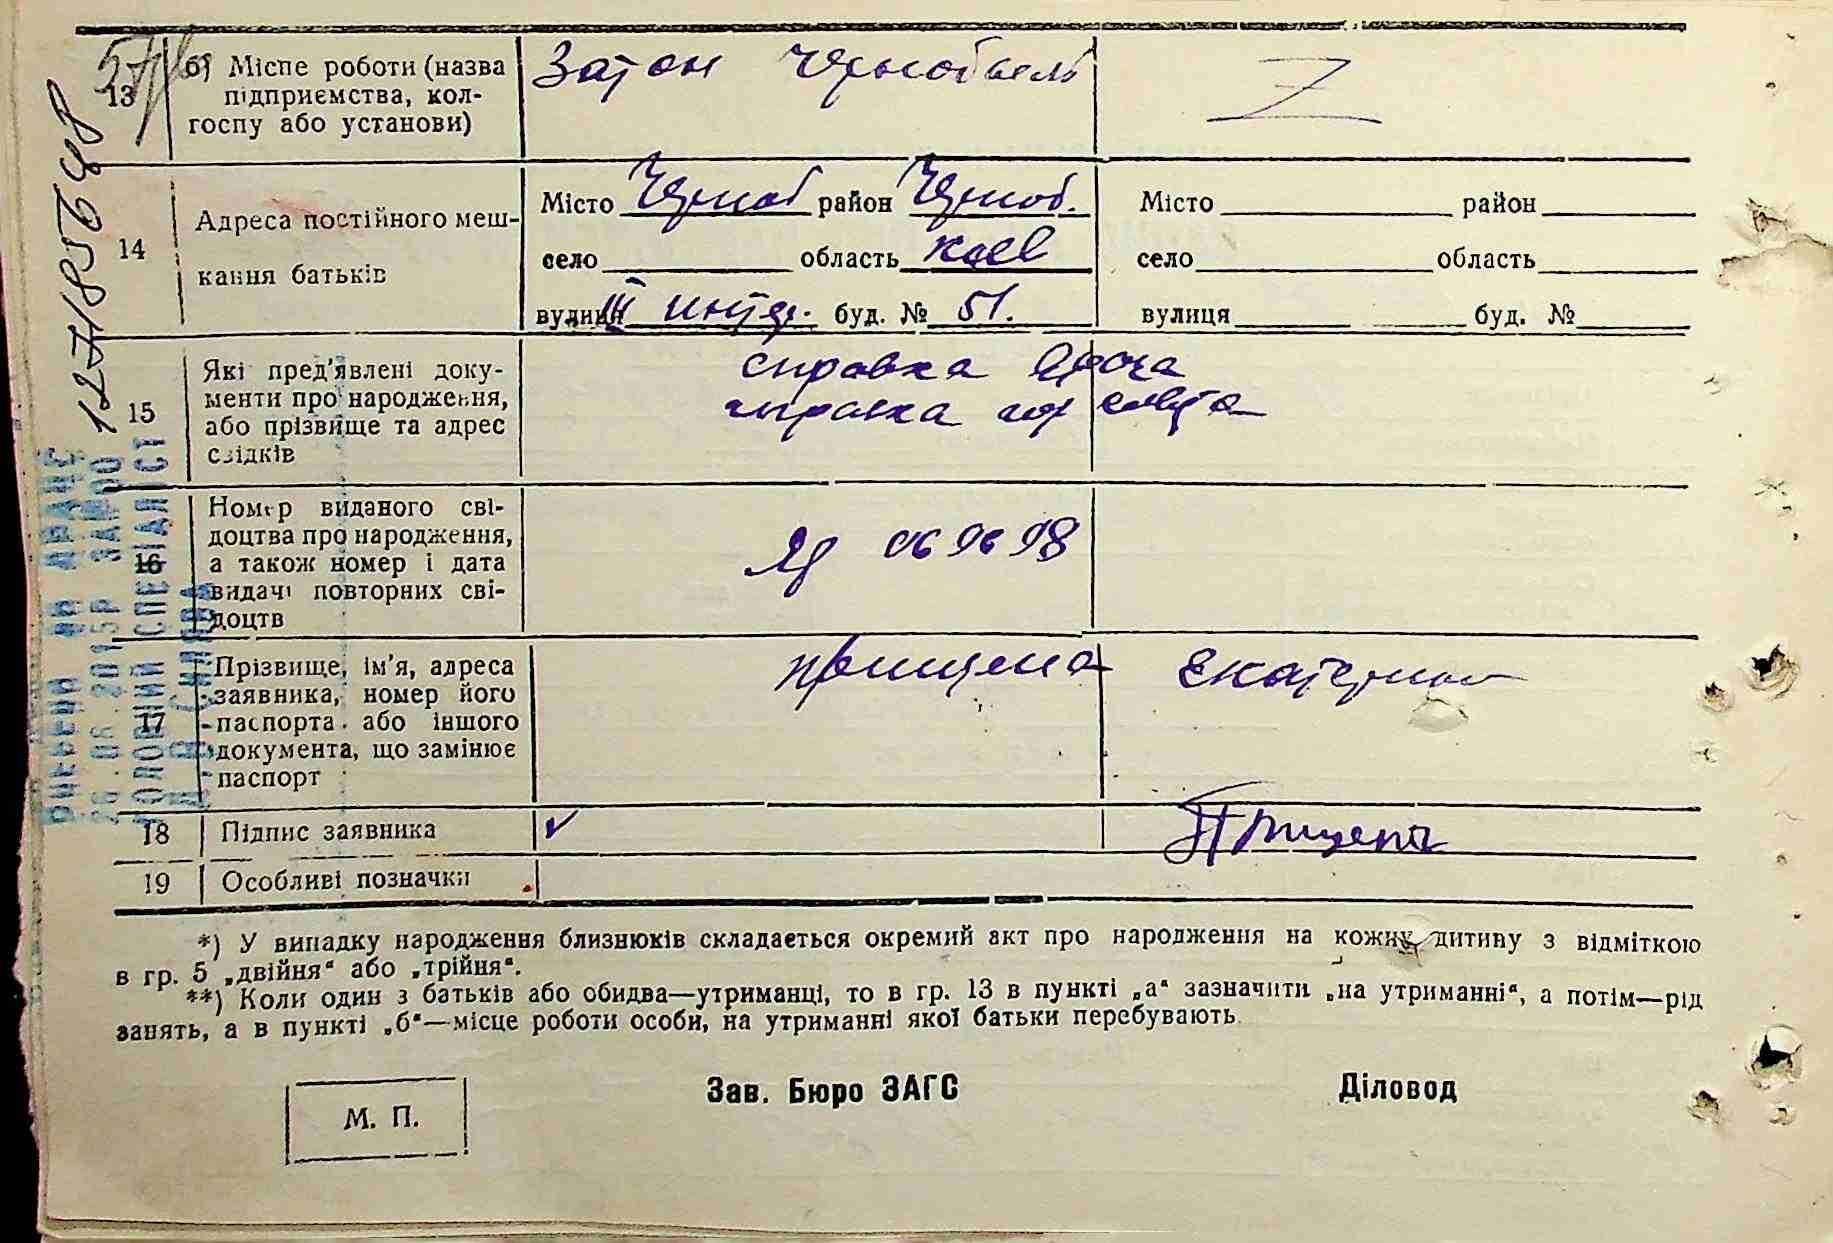 13
б) Місце роботи (назва Затон Чернобыль Z
підприємства, кол-
госпу або установи)
14
Адреса постійного меш-
кання батьків
Місто Черноб район Черноб. Місто район
село область Киев село область
вулиця III интер. буд. № 51. вулиця буд. №
15
Які пред'явлені доку- справка врача
менти про народження, справка
або прізвище та адрес
свідків
16
Номер виданого сві-
доцтва про народження, 069698
а також номер і дата
видачі повторних сві-
доцтв
17
Прізвище, ім'я, адреса Екатерина
заявника, номер його
паспорта або іншого
документа, що замінює
паспорт
18 Підпис заявника
19 Особливі позначки
*) У випадку народження близнюків складається окремий акт про народження на кожну дитину з відміткою
в гр. 5 „двійня“ або „трійня“.
**) Коли один з батьків або обидва—утриманці, то в гр. 13 в пункті „а“ зазначити „на утриманні“, а потім—рід
занять, а в пункті „б“—місце роботи особи, на утриманні якої батьки перебувають.
М. П.
Зав. Бюро ЗАГС Діловод
ГОЛОВНИЙ СПЕЦІАЛІСТ